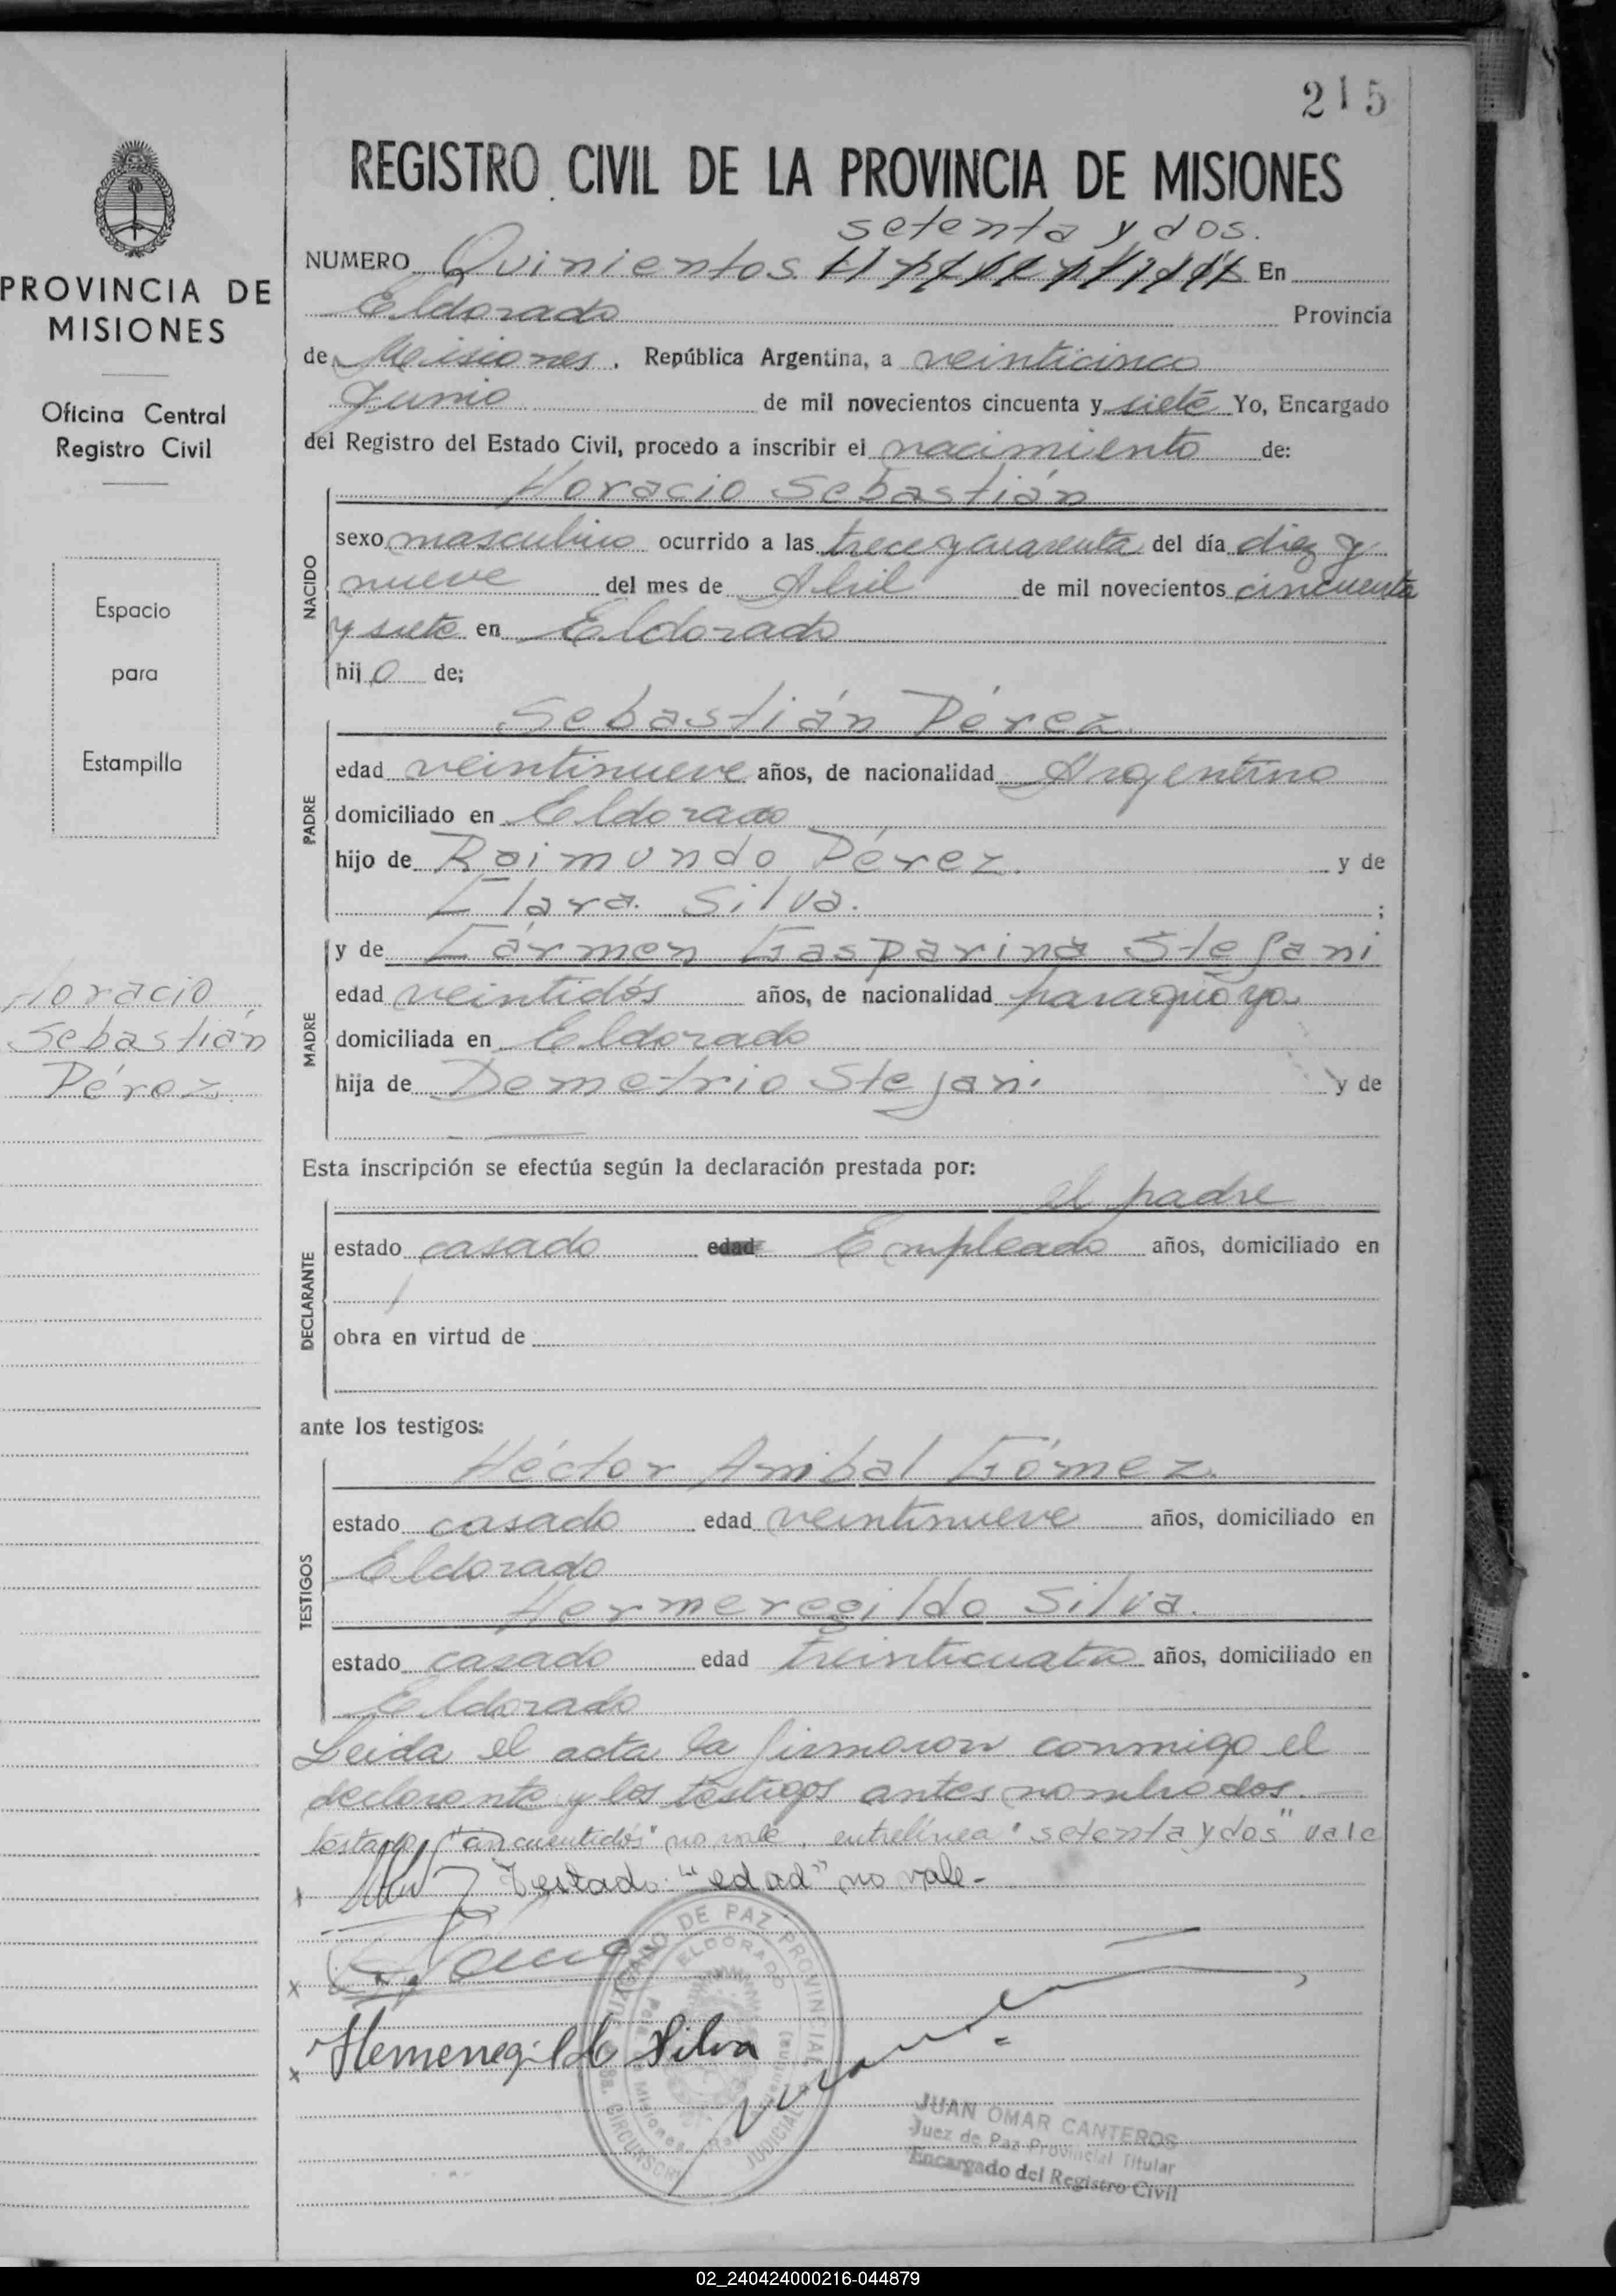 215
REGISTRO CIVIL DE LA PROVINCIA DE MISIONES
PROVINCIA DE
MISIONES
Oficina Central
Registro Civil
Espacio
para
Estampilla
Horacio
Sebastián
Pérez
setenta y dos.
NUMERO Quinientos En
Eldorado Provincia
de Misiones. República Argentina, a veinticinco
Junio de mil novecientos cincuenta y siete Yo, Encargado
del Registro del Estado Civil, procedo a inscribir el nacimiento de:
Horacio Sebastián
NACIDO
sexo masculino ocurrido a las trece y cuarenta del día diez y
nueve del mes de Abril de mil novecientos cincuenta
y siete en Eldorado
hijo de;
Sebastián Pérez.
PADRE
edad veintinueve años, de nacionalidad Argentino
domiciliado en Eldorado
hijo de Raimundo Pérez. y de
Clara Silva. ;
MADRE
y de Cármen Gasparina Stefani
edad veintidós años, de nacionalidad paraguaya
domiciliada en Eldorado
hija de Demetrio Stefani y de
Esta inscripción se efectúa según la declaración prestada por:
el padre
DECLARANTE
estado casado edad Empleado años, domiciliado en
obra en virtud de
ante los testigos:
Héctor Anibal Gómez.
TESTIGOS
estado casado edad veintinueve años, domiciliado en
Eldorado
Hermeregildo Silva.
estado casado edad treinticuatro años, domiciliado en
Eldorado
Leida el acta la firmaron conmigo el
declarante y los testigos antes nombrados.
testado "cincuentidós" no vale. entrelínea "setenta y dos" vale
Testado: "edad" no vale-
x
x
x Hemenegildo Silva
JUZGADO DE PAZ PROVINCIAL
ELDORADO
Misiones
CIRCUNSCR JUDICIAL
JUAN OMAR CANTEROS
Juez de Paz Provincial Titular
Encargado del Registro Civil
02_240424000216-044879